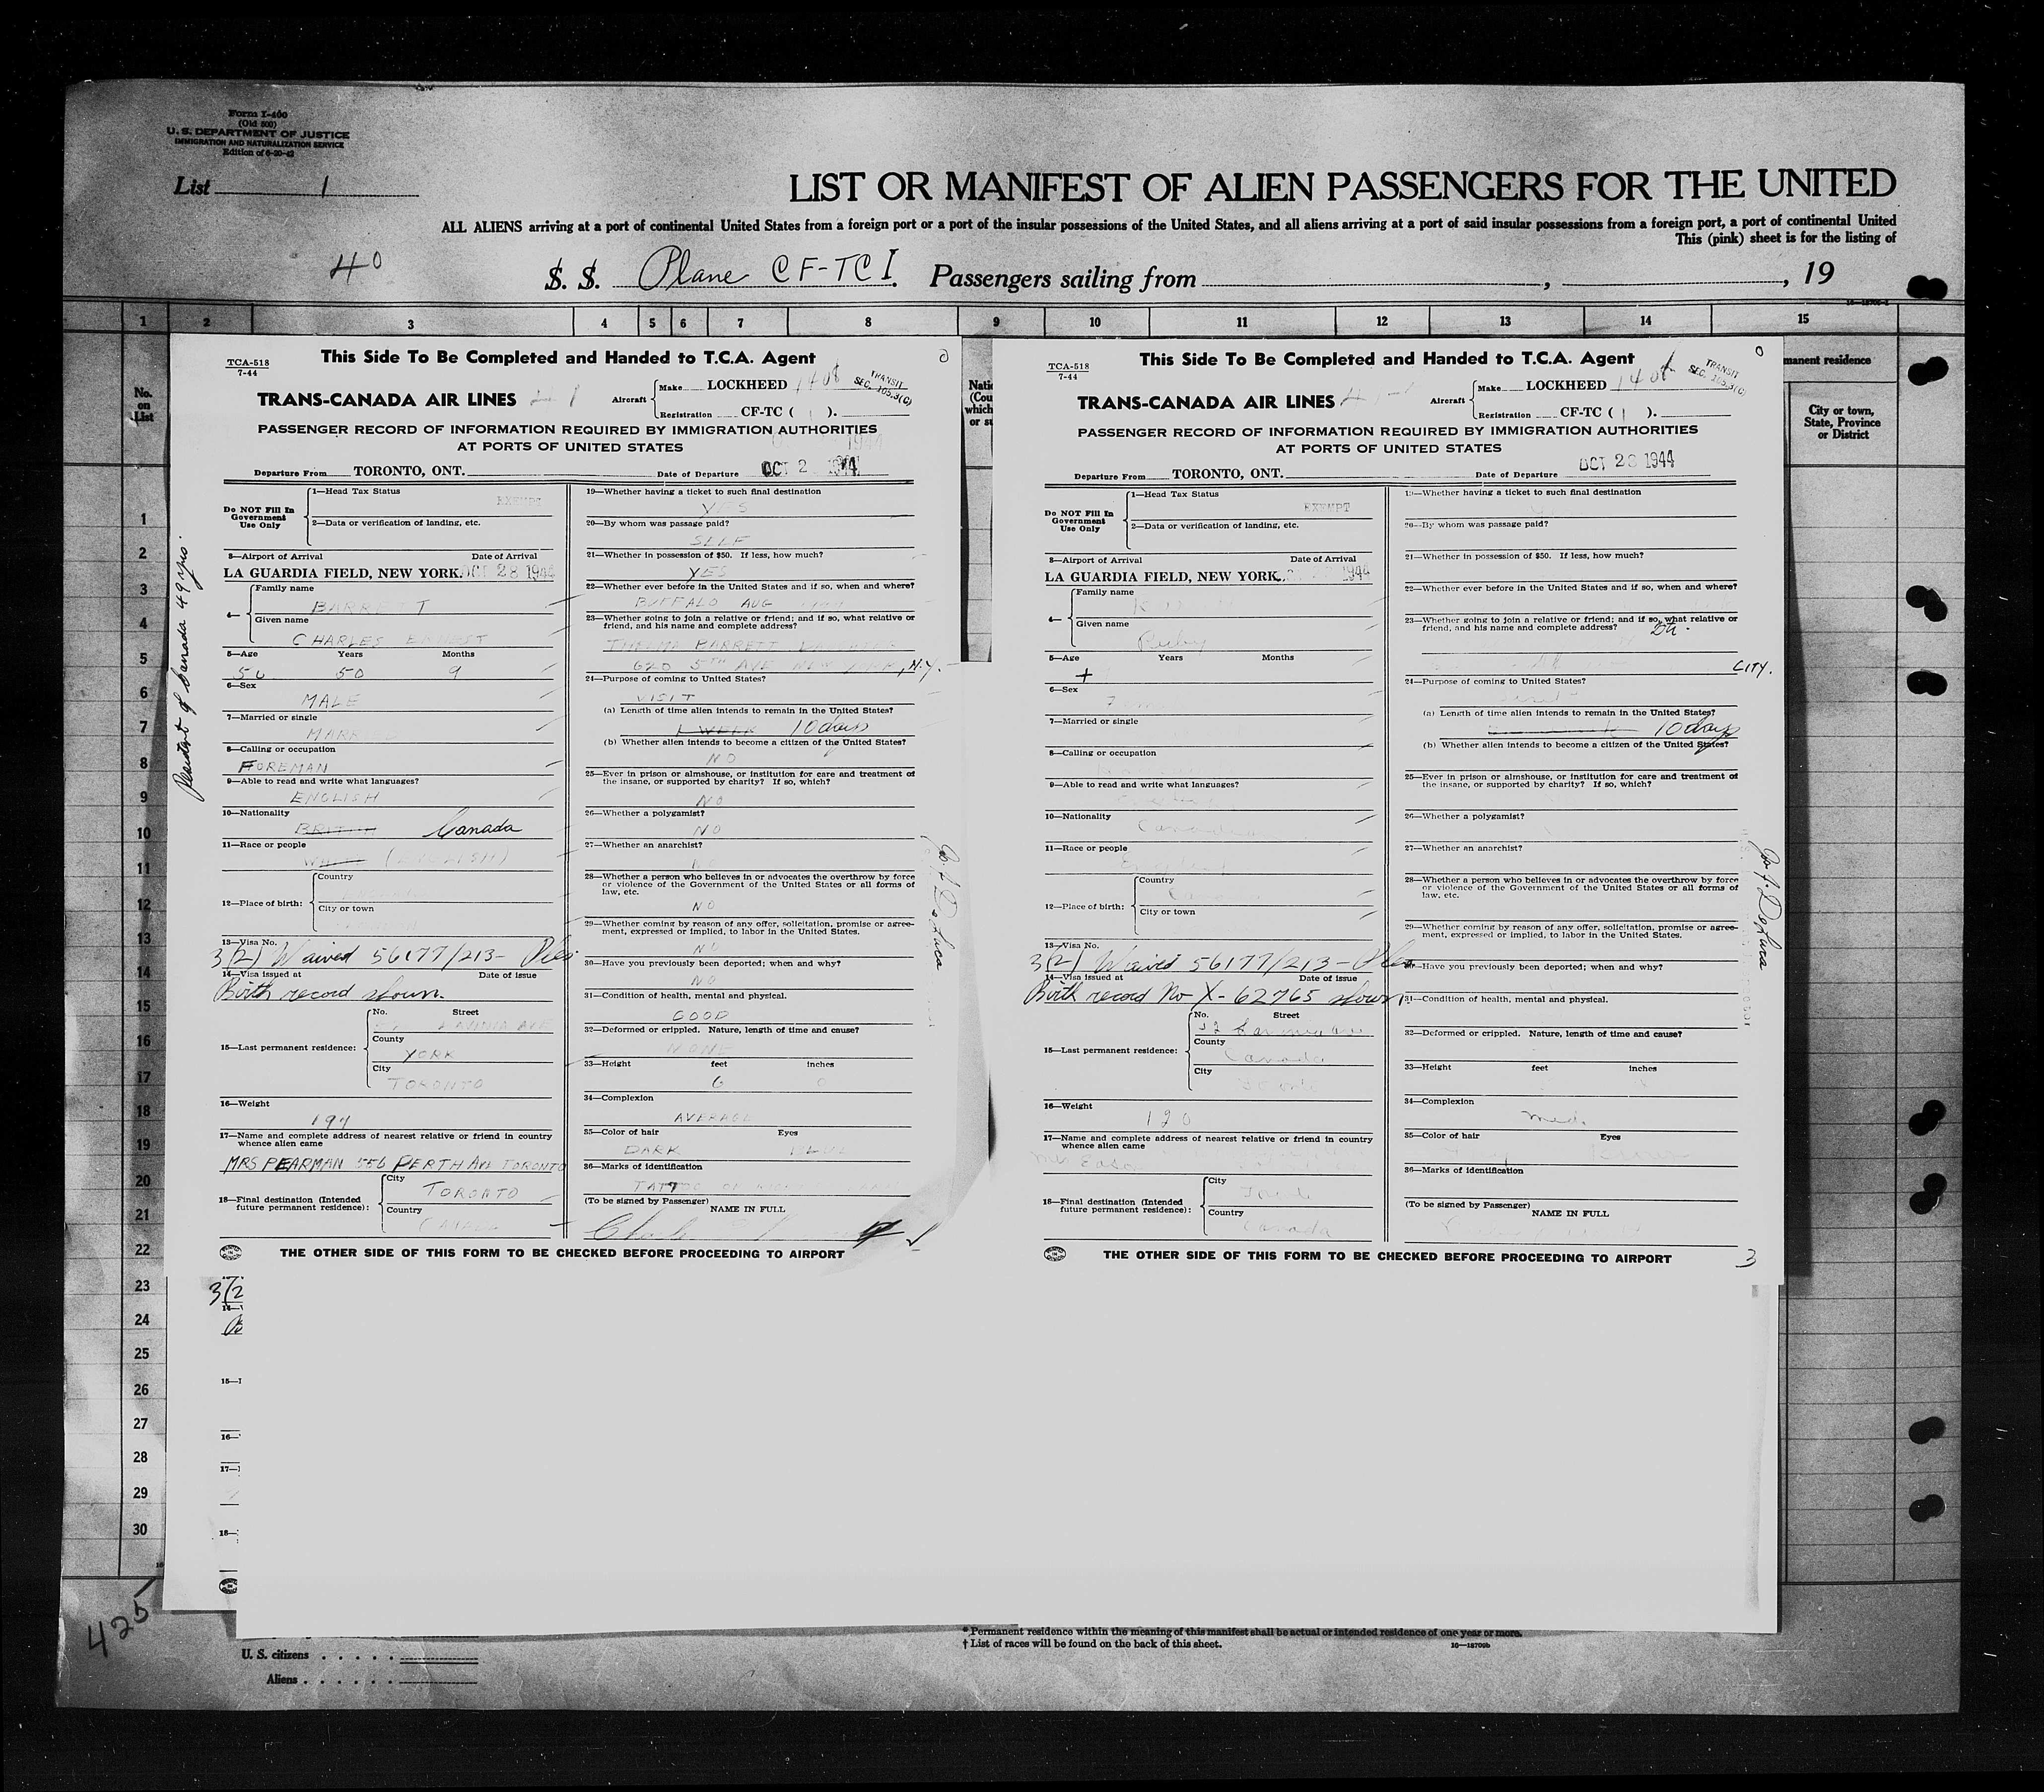 Form I-400
(Old 500)
U. S. DEPARTMENT OF JUSTICE
IMMIGRATION AND NATURALIZATION SERVICE
Edition of 6-20-42
List 1
LIST OR MANIFEST OF ALIEN PASSENGERS FOR THE UNITED
ALL ALIENS arriving at a port of continental United States from a foreign port or a port of the insular possessions of the United States, and all aliens arriving at a port of said insular possessions from a foreign port, a port of continental United
This (pink) sheet is for the listing of
40
S. S. Plane CF-TCI. Passengers sailing from , , 19
1 2 3 4 5 6 7 8 9 10 11 12 13 14 15
No.
on
List
1
2
3
4
5
6
7
8
9
10
11
12
13
14
15
16
17
18
19
20
21
22
23
24
25
26
27
28
29
30
TCA-518
7-44
This Side To Be Completed and Handed to T.C.A. Agent
TRANS-CANADA AIR LINES
Aircraft
Make LOCKHEED 1408
Registration CF-TC ( ).
TRANSIT
SEC. 105.3(C)
PASSENGER RECORD OF INFORMATION REQUIRED BY IMMIGRATION AUTHORITIES
AT PORTS OF UNITED STATES
Departure From TORONTO, ONT. Date of Departure OCT 2 1944
Do NOT Fill In
Government
Use Only
1—Head Tax Status EXEMPT
2—Data or verification of landing, etc.
3—Airport of Arrival Date of Arrival
LA GUARDIA FIELD, NEW YORK. OCT 28 1944
4—
Family name
BARRETT
Given name
CHARLES ERNEST
5—Age Years Months
50 50 9
6—Sex
MALE
7—Married or single
MARRIED
8—Calling or occupation
FOREMAN
9—Able to read and write what languages?
ENGLISH
10—Nationality
Canada
11—Race or people
(ENGLISH)
12—Place of birth:
Country
City or town
13—Visa No.
3(2) Waived 56177/213-
14—Visa issued at Date of issue
Birth record shown.
15—Last permanent residence:
No. Street
County
YORK
City
TORONTO
16—Weight
197
17—Name and complete address of nearest relative or friend in country
whence alien came
MRS PEARMAN 556 PERTH AVE TORONTO
18—Final destination (Intended
future permanent residence):
City
TORONTO
Country
CANADA
19—Whether having a ticket to such final destination
YES
20—By whom was passage paid?
SELF
21—Whether in possession of $50. If less, how much?
YES
22—Whether ever before in the United States and if so, when and where?
BUFFALO AUG
23—Whether going to join a relative or friend; and if so, what relative or
friend, and his name and complete address?
THELMA BARRETT
620 5TH AVE NEW YORK, N.Y.
24—Purpose of coming to United States?
VISIT
(a) Length of time alien intends to remain in the United States?
1 WEEK 10 days
(b) Whether alien intends to become a citizen of the United States?
NO
25—Ever in prison or almshouse, or institution for care and treatment of
the insane, or supported by charity? If so, which?
NO
26—Whether a polygamist?
NO
27—Whether an anarchist?
NO
28—Whether a person who believes in or advocates the overthrow by force
or violence of the Government of the United States or all forms of
law, etc.
NO
29—Whether coming by reason of any offer, solicitation, promise or agree-
ment, expressed or implied, to labor in the United States.
NO
30—Have you previously been deported; when and why?
NO
31—Condition of health, mental and physical.
GOOD
32—Deformed or crippled. Nature, length of time and cause?
NONE
33—Height feet inches
6 0
34—Complexion
AVERAGE
35—Color of hair Eyes
DARK BLUE
36—Marks of identification
(To be signed by Passenger)
NAME IN FULL
THE OTHER SIDE OF THIS FORM TO BE CHECKED BEFORE PROCEEDING TO AIRPORT
Resident of Canada 49 yrs.
TCA-518
7-44
This Side To Be Completed and Handed to T.C.A. Agent
TRANS-CANADA AIR LINES
Aircraft
Make LOCKHEED 1408
Registration CF-TC ( ).
TRANSIT
SEC. 105.3(C)
PASSENGER RECORD OF INFORMATION REQUIRED BY IMMIGRATION AUTHORITIES
AT PORTS OF UNITED STATES
Departure From TORONTO, ONT. Date of Departure OCT 28 1944
Do NOT Fill In
Government
Use Only
1—Head Tax Status EXEMPT
2—Data or verification of landing, etc.
3—Airport of Arrival Date of Arrival
LA GUARDIA FIELD, NEW YORK. 1944
4—
Family name
Given name
Ruby
5—Age Years Months
6—Sex
7—Married or single
8—Calling or occupation
9—Able to read and write what languages?
10—Nationality
Canadian
11—Race or people
English
12—Place of birth:
Country
City or town
13—Visa No.
3(2) Waived 56177/213-
14—Visa issued at Date of issue
Birth record No X-62765 shown.
15—Last permanent residence:
No. Street
County
Canada
City
16—Weight
120
17—Name and complete address of nearest relative or friend in country
whence alien came
18—Final destination (Intended
future permanent residence):
City
Country
Canada
19—Whether having a ticket to such final destination
20—By whom was passage paid?
21—Whether in possession of $50. If less, how much?
22—Whether ever before in the United States and if so, when and where?
23—Whether going to join a relative or friend; and if so, what relative or
friend, and his name and complete address?
CITY.
24—Purpose of coming to United States?
(a) Length of time alien intends to remain in the United States?
10 days
(b) Whether alien intends to become a citizen of the United States?
25—Ever in prison or almshouse, or institution for care and treatment of
the insane, or supported by charity? If so, which?
26—Whether a polygamist?
27—Whether an anarchist?
28—Whether a person who believes in or advocates the overthrow by force
or violence of the Government of the United States or all forms of
law, etc.
29—Whether coming by reason of any offer, solicitation, promise or agree-
ment, expressed or implied, to labor in the United States.
30—Have you previously been deported; when and why?
31—Condition of health, mental and physical.
32—Deformed or crippled. Nature, length of time and cause?
33—Height feet inches
34—Complexion
med.
35—Color of hair Eyes
36—Marks of identification
(To be signed by Passenger)
NAME IN FULL
THE OTHER SIDE OF THIS FORM TO BE CHECKED BEFORE PROCEEDING TO AIRPORT
3
manent residence
City or town,
State, Province
or District
3(2
15—
16—
17—
18—
425
U. S. citizens
Aliens
* Permanent residence within the meaning of this manifest shall be actual or intended residence of one year or more.
† List of races will be found on the back of this sheet.